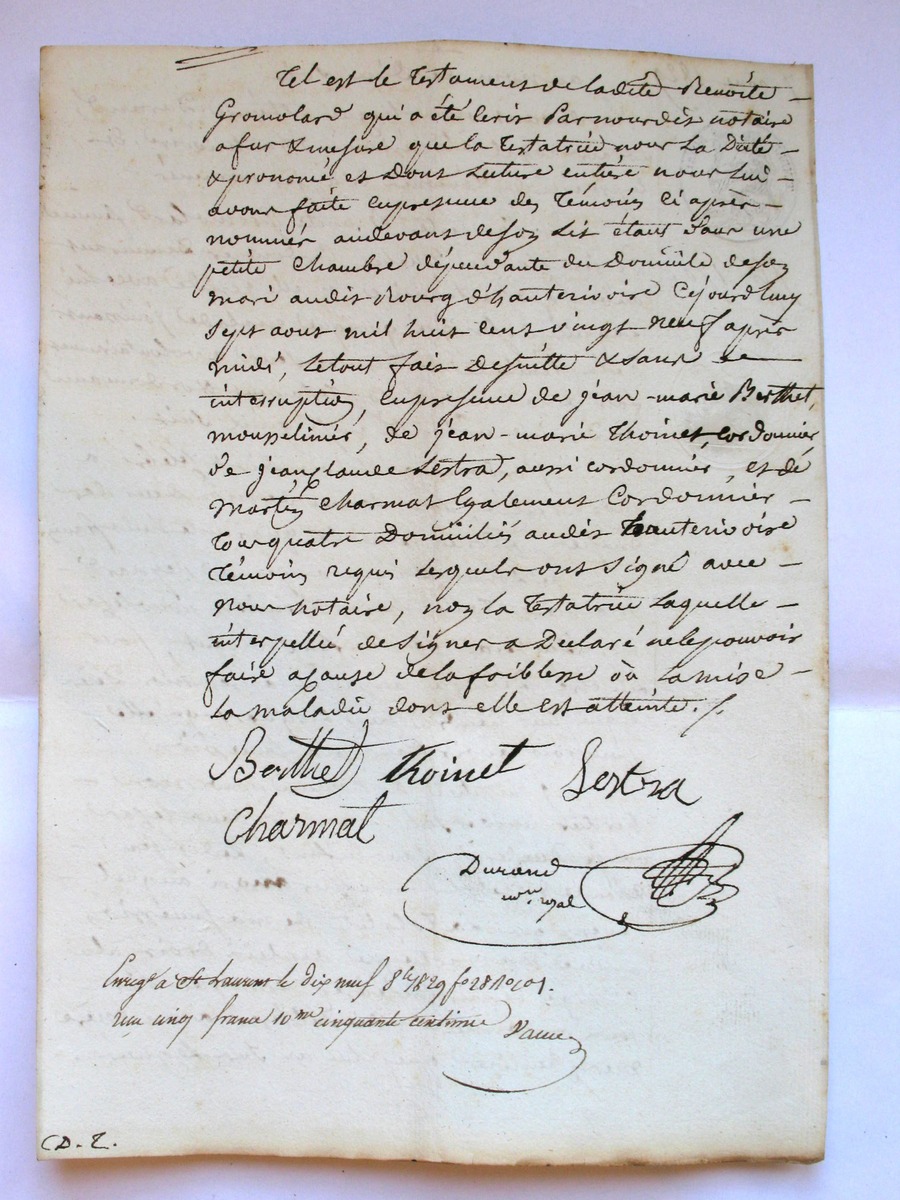 Tel est le Testament de ladite Benoite
Gromolard qui a été écrit Par nous dit notaire
a fur & mesure que la Testatrice nous La Dicté
& prononcé et Dont Lecture entière nous Lui
avons faite En presence des Témoins Ci après
nommés au devant de son Lit étant dans une
petite Chambre dépendante du Domicile de son
mari audit Bourg d'hauterivoire Cejourdhuy
Sept aout mil huit Cent vingt neuf après
midi, Le tout fait De suitte & sans
interruption, En presence de jean-marie Berthet,
mousselinier, de jean-marie Thoinet, cordonnier,
de jean claude Lestra, aussi cordonnier, et de
Martin Charmat Egalement Cordonnier
Tous quatre Domiciliés audit hauterivoire
Témoins requis Lesquels ont Signé avec
Nous notaire, non La Testatrice Laquelle
interpellée de Signer a Déclaré ne le pouvoir
faire a cause de la foiblesse où La mise
La maladie dont elle est atteinte ./.
Berthet Thoinet Lestra
Charmat
Durand
no.re royal
Enreg.é a St Laurent le dix neuf 8bre 1829 fo 28
cinq francs 10me cinquante centime
CD. T.